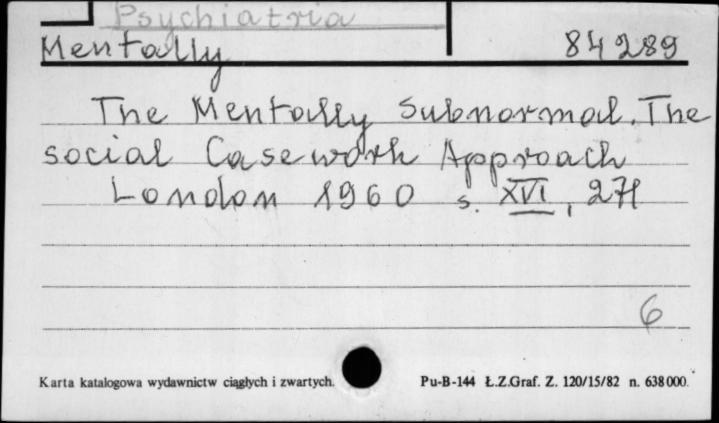 Psychiatria
Mentally 84289
The Mentally Subnormal. The
social Casework Approach
London 1960 s. XVI, 271
6
Karta katalogowa wydawnictw ciągłych i zwartych. Pu-B-144 Ł.Z.Graf. Z. 120/15/82 n. 638000.